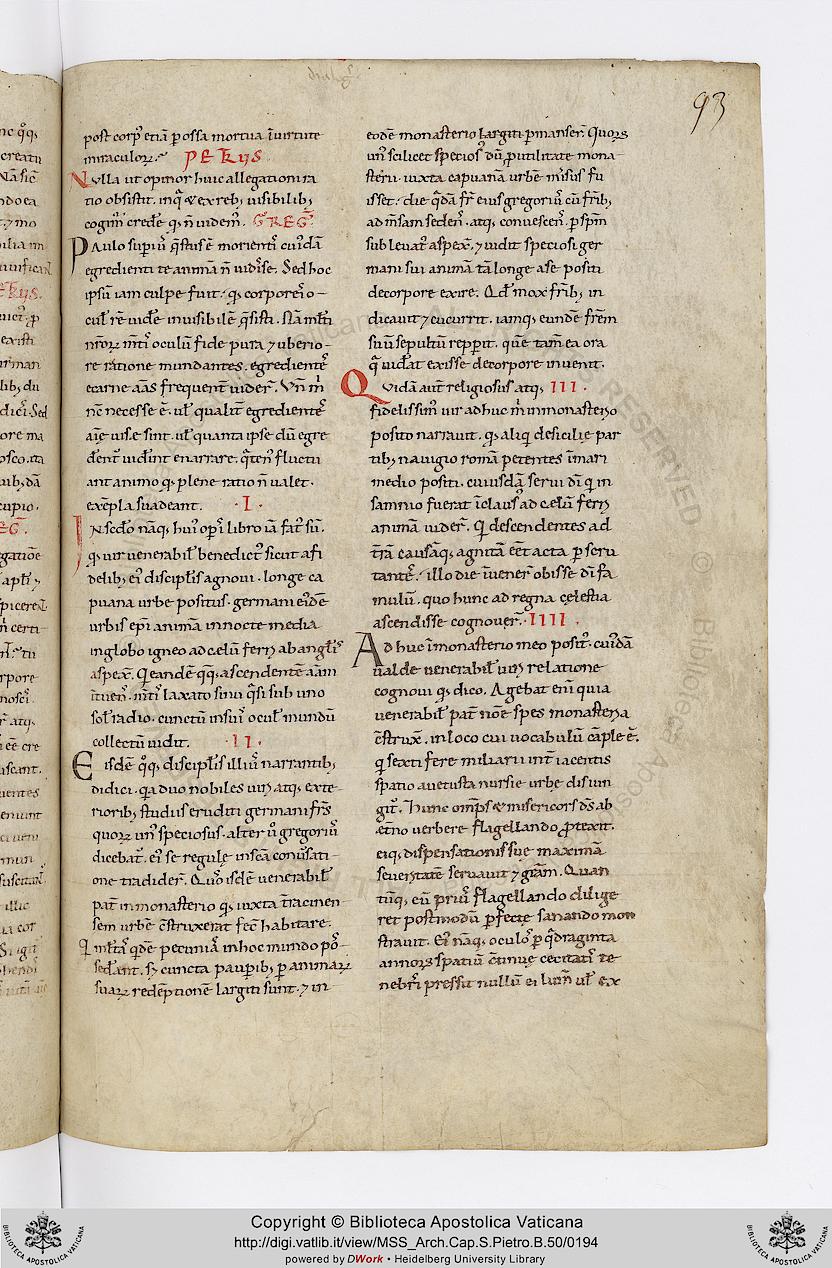 93
post corp⁹ etiā p ossa mortua ī uirtute
miraculoꝝ. PETRUS
Nulla ut opinor huic allegationi ra
tio obsistit. in qͣ & ex reb; uisibilib;
cogim̄ crede q; n̄ uidem̄. GREG̅.
Paulo superi⁹ q̄stus ē morienti cui⁹dā
egredienti te animā n̄ uidisse. Sed hoc
ipsū iam culpe fuit. q; corporeo o-
cul̄ rē uide inuisibilē q̄sisti. Nā m̄ti
n̄roꝝ m̄ti oculū fide pura ⁊ uberio-
re ratione mundantes. egredientes
e carne aīas frequent̄ uider̄.
nē necesse ē. ul̄ qualit̄ egredientes
aīe uise sint. ul̄ quanta ipse dū egre
dent̄ uiderint enarrare. q̄ten⁹ fluctu
ant animo q; plene ratio n̄ ualet.
exēpla suadeant. ·I·
In scd̄o nāq; hui⁹ op̄is libro iā fat⁹ sū.
q; uir uenerabil̄ benedict⁹ sicut a fi
delib; ei⁹ discipl̄is agnoui. longe ca
puana urbe positus. germani ei⁹dē
urbis ep̄i animā in nocte media
in globo igneo ad celū ferri ab angl̄is
aspex̄. Qi eandē q̄q; ascendentē aīam
ītuen̄. m̄tis laxato sinu q̄si sub uno
sol̄ radio. cunctū in sui⁹ ocul̄ mundū
collectū uidit. ·II·
Eisdē q⁰q; discipl̄is illi⁹ narrantib;
didici. qa duo nobiles uiri atq; exte-
riorib; studiis eruditi germani fr̄s
quoꝝ un⁹ speciosus. alter ū gregori⁹
dicebat̄. ei⁹ se regule in sc̄a conūsati-
one tradider̄. Quos isdē uenerabil̄
pat̄ in monasterio q; iuxta tracinen
sem urbē c̄struxerat fec̄ habitare.
Qi m̄tā qdē pecuniā in hoc mundo pos-
sederant. s; cuncta paup̄ib; p animaꝝ
suaꝝ redēptione largiti sunt. ⁊ in
eodē monasterio largiti p̄manser̄. Quoꝝ
un⁹ scilicet specios⁹ dū p utilitate mona-
sterii iuxta capuanā urbē missus fu
isset. die qdā fr̄ eius gregori⁹ cū fr̄ib;
ad m̄sam seden̄. atq; conuescen̄. p sp̄m
subleuat⁹ aspex̄. ⁊ uidit speciosi ger
mani sui animā tā longe a se positi
de corpore exire. Qd̄ mox fr̄ib; in
dicauit ⁊ cucurrit. iamq; eundē fr̄em
suū sepultū repperit. quē tam̄ ea ora
q̄ uidat exisse de corpore inuenit.
Quidā aut̄ religiosus atq; III·
fidelissim⁹ uir adhuc m̄ in monasterio
posito narrauit. q; aliqi de sicilie par
tib; nauigio romā petentes ī mari
medio positi. cuiusdā serui dī qi in
samnio fuerat īclaus⁹ ad celū ferri
animā uider̄. Qi descendentes ad
t̄rā causāq; agnitā eēt acta p̄scru
tantes. illo die īuener̄ obisse dī fa
mulū. quo hunc ad regna celestia
ascendisse cognouer̄. ·IIII·
Adhuc ī monasterio meo posit⁹. cui⁹dā
ualde uenerabil̄ uiri relatione
cognoui q; dico. Agebat eni quia
uenerabil̄ pat̄ nōe spes monasteria
c̄struxit. in loco cui uocabulū cāple ē.
qi sexti fere miliarii int̄iacentis
spatio a uetusta nursie urbe disiun
git̄. Hunc omp̄s & misericors d̄s ab
et̄no uerbere flagellando p̄texit.
eiq; dispensationis sue maximā
seueritatē seruauit ⁊ gr̄am. Quan
tūq; eū pri⁹ flagellando dilige
ret postmodū p̄fecte sanando mon
strauit. Ei⁹ nāq; oculos p q̄draginta
annoꝝ spatiū c̄tinue cecitatis te
nebris pressit nullū ei lum̄ ul̄ ex
Copyright © Biblioteca Apostolica Vaticana
http://digi.vatlib.it/view/MSS_Arch.Cap.S.Pietro.B.50/0194
powered by DWork • Heidelberg University Library